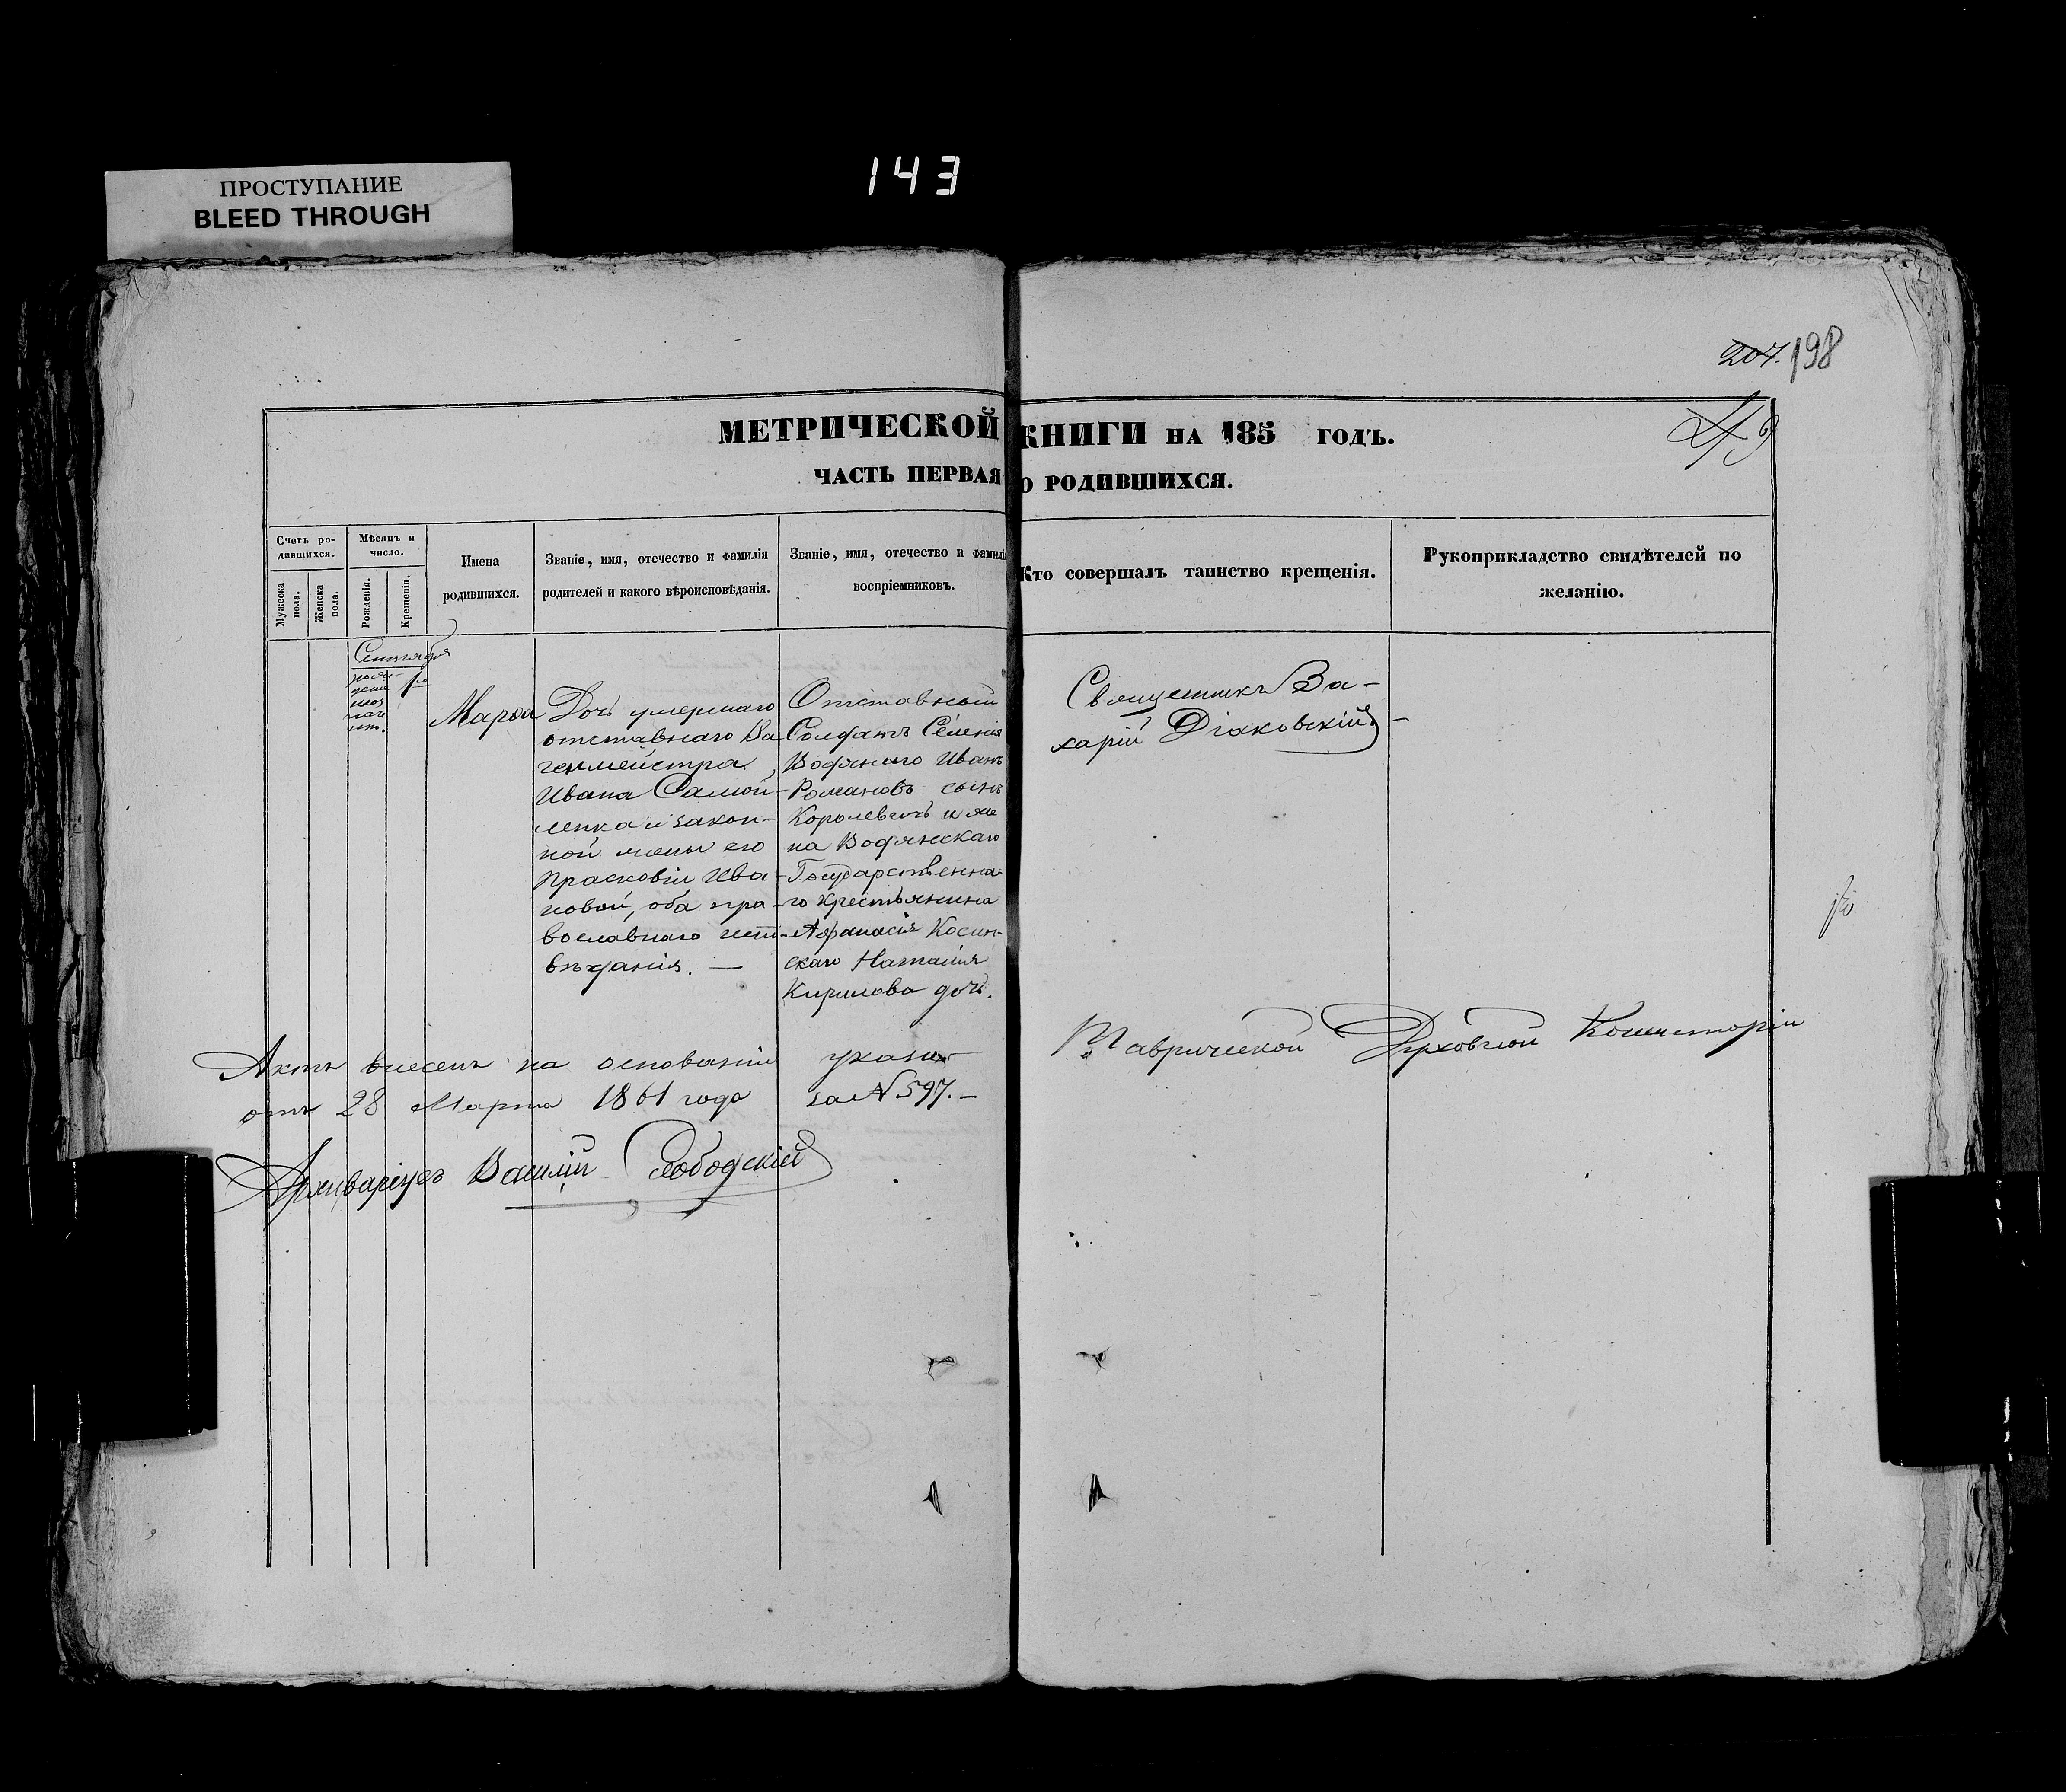 ПРОСТУПАНИЕ
BLEED THROUGH
143
207. 198
49
МЕТРИЧЕСКОЙ КНИГИ НА 185 ГОДЪ.
ЧАСТЬ ПЕРВАЯ О РОДИВШИХСЯ.
Счетъ родившихся.
Мужеска пола.
Женска пола.
Мѣсяцъ и число.
Рожденія.
Крещенія.
Имена
родившихся.
Званіе, имя, отечество и фамилія
родителей и какого вѣроисповѣданія.
Званіе, имя, отечество и фамилія
воспріемниковъ.
Кто совершалъ таинство крещенія.
Рукоприкладство свидѣтелей по
желанію.
Сентября
рож-
дение
не оз
наче
но.
1го
Марѳа
Дочь умершаго
отставнаго Ва
генмейстра
Ивана Самой-
ленка и закон-
ной жены его
Прасковіи Ива-
новой, оба пра-
вославнаго испо-
вѣданія. —
Отставный
Солдатъ Селенія
Водянаго Иванъ
Романовъ сынъ
Королевичъ и же
на Водянскаго
Государственна-
го крестьянина
Афанасія Косин-
скаго Наталія
Кирилова дочь.
Священникъ За-
харій Діаковскій. —
Актъ внесенъ на основаніи указа Таврической Духовной Консисторіи
отъ 28 Марта 1861 года за N 597. —
Архиваріусъ Василій Слободскій